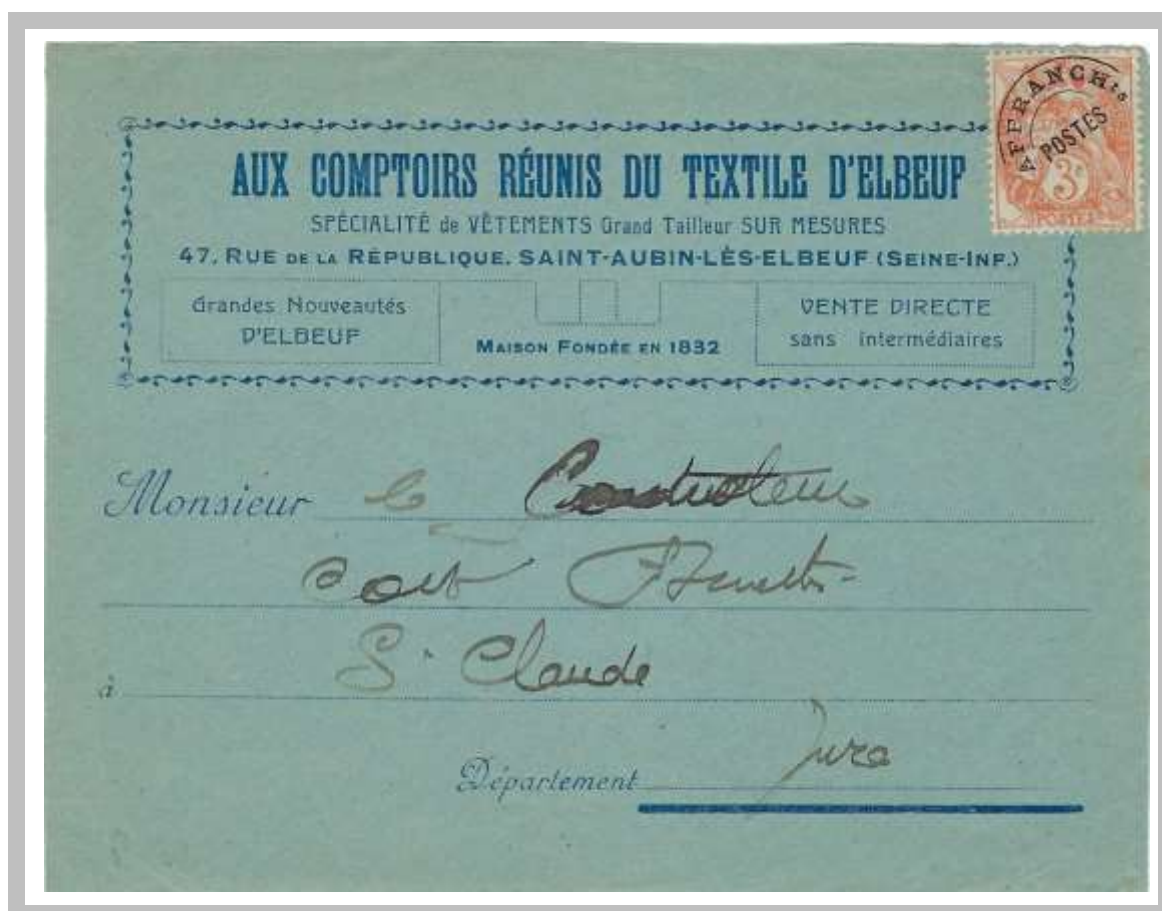 AFFRANCHts
POSTES
3c
POSTES
AUX COMPTOIRS RÉUNIS DU TEXTILE D'ELBEUF
SPÉCIALITÉ de VÊTEMENTS Grand Tailleur SUR MESURES
47, RUE DE LA RÉPUBLIQUE. SAINT-AUBIN-LÈS-ELBEUF (SEINE-INF.)
Grandes Nouveautés
D'ELBEUF
MAISON FONDÉE EN 1832
VENTE DIRECTE
sans intermédiaires
Monsieur le Controleur
S. Claude
à
Département Jura